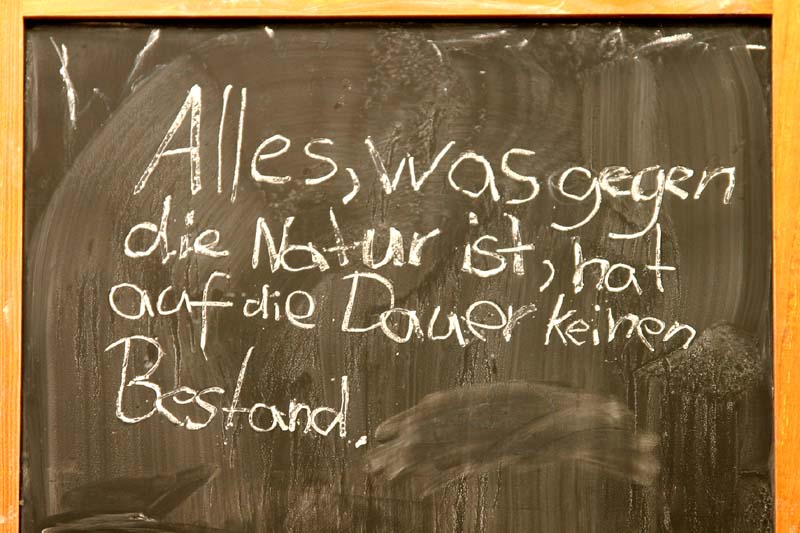 Alles, was gegen
die Natur ist, hat
auf die Dauer keinen
Bestand.